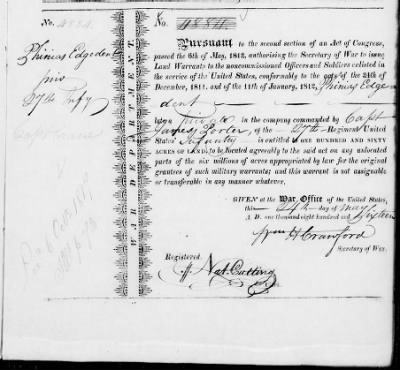 No. 4884.
Phinias Edgedent
priv
27th Infy
WAR DEPARTMENT.
No. 4884
Pursuant to the second section of an Act of Congress,
passed the 6th of May, 1812, authorising the Secretary of War to issue
Land Warrants to the noncommissioned Officers and Soldiers enlisted in
the service of the United States, conformably to the acts of the 24th of
December, 1811, and of the 11th of January, 1812, Phinias Edge
dent
late a private in the company commanded by Capt
James of the 27th Regiment United
States' Infantry is entitled to ONE HUNDRED AND SIXTY
ACRES OF LAND, to be located agreeably to the said act on any unlocated
part of the six millions of acres appropriated by law for the original
grantees of such military warrants; and this warrant is not assignable
or transferable in any manner whatever.
GIVEN at the War Office of the United States,
this 24th day of May
A. D. one thousand eight hundred and Sixteen
Wm H Crawford
Secretary of War.
Registered.
Nat. Cutting